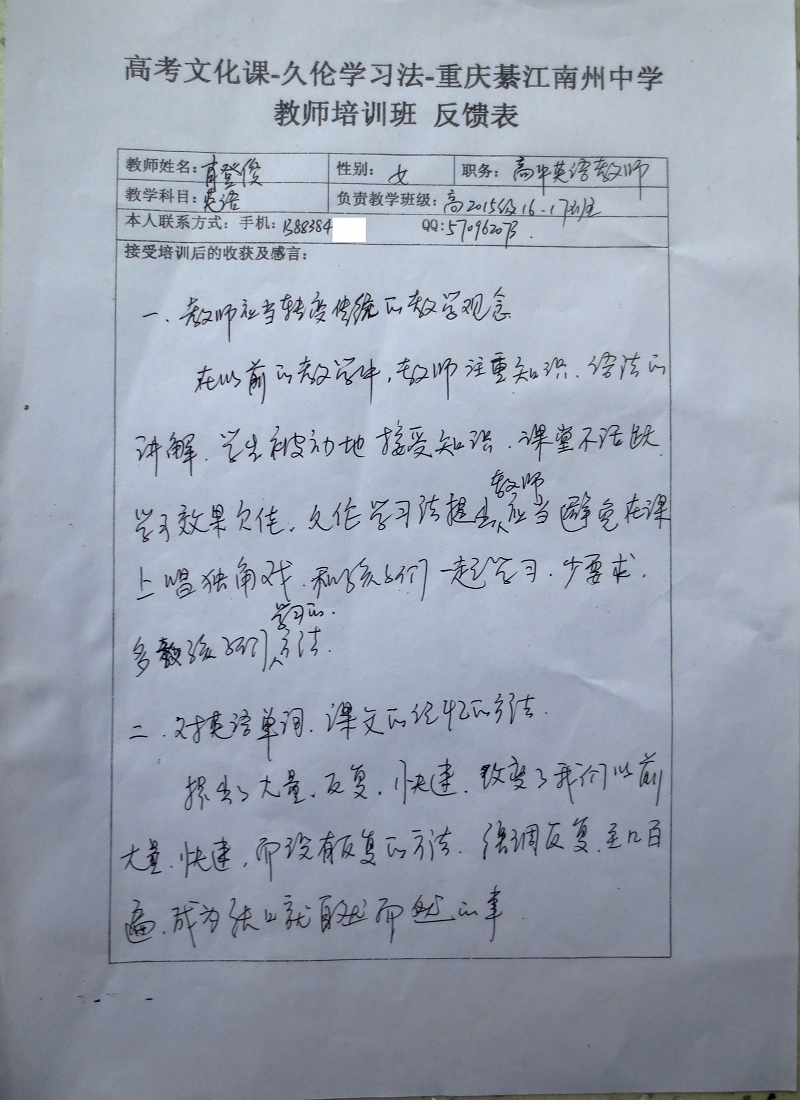 高考文化课-久伦学习法-重庆綦江南州中学
教师培训班 反馈表
教师姓名：登俊 性别：女 职务：高中英语教师
教学科目：英语 负责教学班级：高2015级16-17班
本人联系方式：手机：1388384 QQ：570962073.
接受培训后的收获及感言：
一、教师应当转变传统的教学观念
在以前的教学中，教师注重知识、语法的
讲解，学生被动地接受知识，课堂不活跃
学习效果欠佳。久伦学习法提出教师应当避免在课
上唱独角戏，和孩子们一起学习，少要求，
多教孩子们学习的方法.
二、对英语单词、课文的记忆的方法.
提出了大量、反复、快速，改变了我们以前
大量、快速，而没有反复的方法，强调反复至几百
遍，成为张口就自然而然的事